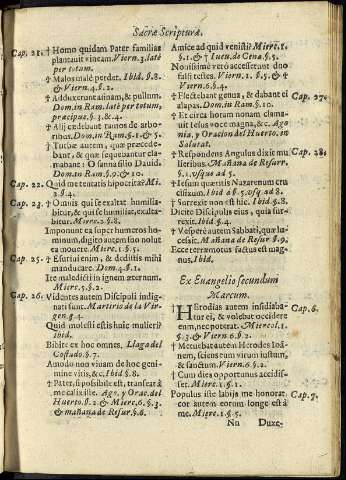 Sacræ Scripturæ.
Cap. 21. † Homo quidam Pater familias
plantauit vineam. Viern. 3. latè
per totum.
† Malos malè perdet. Ibid. §. 8.
& Viern. 4. §. 2.
† Adduxerunt asinam, & pullum.
Dom. in Ram. latè per totum,
præcipue, §. 3. & 4.
† Alij cædebant ramos de arbo-
ribus. Dom. in Ram. §. 1. & 5.
† Turbæ autem, quæ præcede-
bant, & quæ sequebantur cla-
mabant: O sanna filio Dauid.
Dom. in Ram. §. 9. & 10.
Cap. 22. Quid me tentatis hipocritæ? Mi.
2. §. 4.
Cap. 23. † Omnis qui se exaltat humilia-
bitur, & qui se humiliat, exalta-
bitur. Mierc. 2. §. 8.
Imponunt ea super humeros ho-
minum, digito autem suo nolut
ea mouere. Mierc. 1. §. 5.
Cap. 25. † Esuriui enim, & dedistis mihi
manducare. Dom. 4. §. 1.
Ite maledicti in ignem æternum.
Mierc. §. 2.
Cap. 26. Videntes autem Discipuli indig-
nati sunt. Martirio de la Vir-
gen. §. 4.
Quid molesti estis huic mulieri?
Ibid.
Bibite ex hoc omnes, Llaga del
Costado. §. 7.
Amodo non viuam de hoc geni-
mine vitis, &c. Ibid §. 8.
† Pater, si possibile est, transeat à
me calix iste. Ag. y Orac. del
Huerto. §. 2. & Mierc. 6. §. 3.
& mañana de Resur. §. 6.
Amice ad quid venisti? Mierc. 1.
§. 1. & † Iueu. de Cena. §. 5.
Nouissimè verò accesserunt duo
falsi testes. Viern. 1. §. 5. &
Viern. 6. §. 4.
Cap. 27. † Flectebant genus, & dabant ei
alapas. Dom. in Ram. §. 10.
† Et circa horam nonam clama-
uit Iesus voce magna, &c. Ago-
nia, y Oracion del Huerto, in
Salutat.
Cap. 28. † Respondens Angelus dixit mu
lieribus. Mañana de Resurr.
§. 1. vsque ad 5.
† Iesum quæritis Nazarenum cru
cifixum. Ibid. §. 6. vsq; ad §. 8.
† Surrexit non est hic. Ibid §. 8.
Dicite Discipulis eius, quia sur-
rexit. Ibid. §. 4.
† Vespere autem Sabbati, quæ lu-
cescit. Mañana de Resur §. 9.
Ecce terræmotus factus est mag-
nus. Ibid.
Ex Euangelio secundum
Marcum.
Cap. 6. † Herodias autem insidiaba-
tur ei, & volebat occidere
eum, nec poterat. Miercol. 1.
§. 3. & Viern. 6. §. 2.
† Metuebat autem Herodes Io-
annem, sciens eum virum iustum,
& sanctum. Viern. 6. §. 2.
† Cum dies opportunus accidis-
set. Mierc. 1. §. 1.
Cap. 7. Populus iste labijs me honorat
cor autem eorum longe est à
me. Mierc. 1. §. 5.
Nn Duxe-